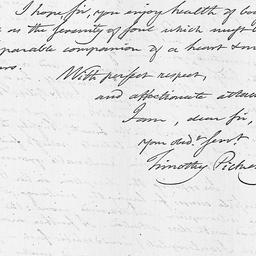 I hope sir, you enjoy health of bo
as the serenity of soul which must b
parable companion of a heart & m
rs.
With perfect respect,
and affectionate attac
I am, dear sir,
your obd.t servt.
Timothy Picker